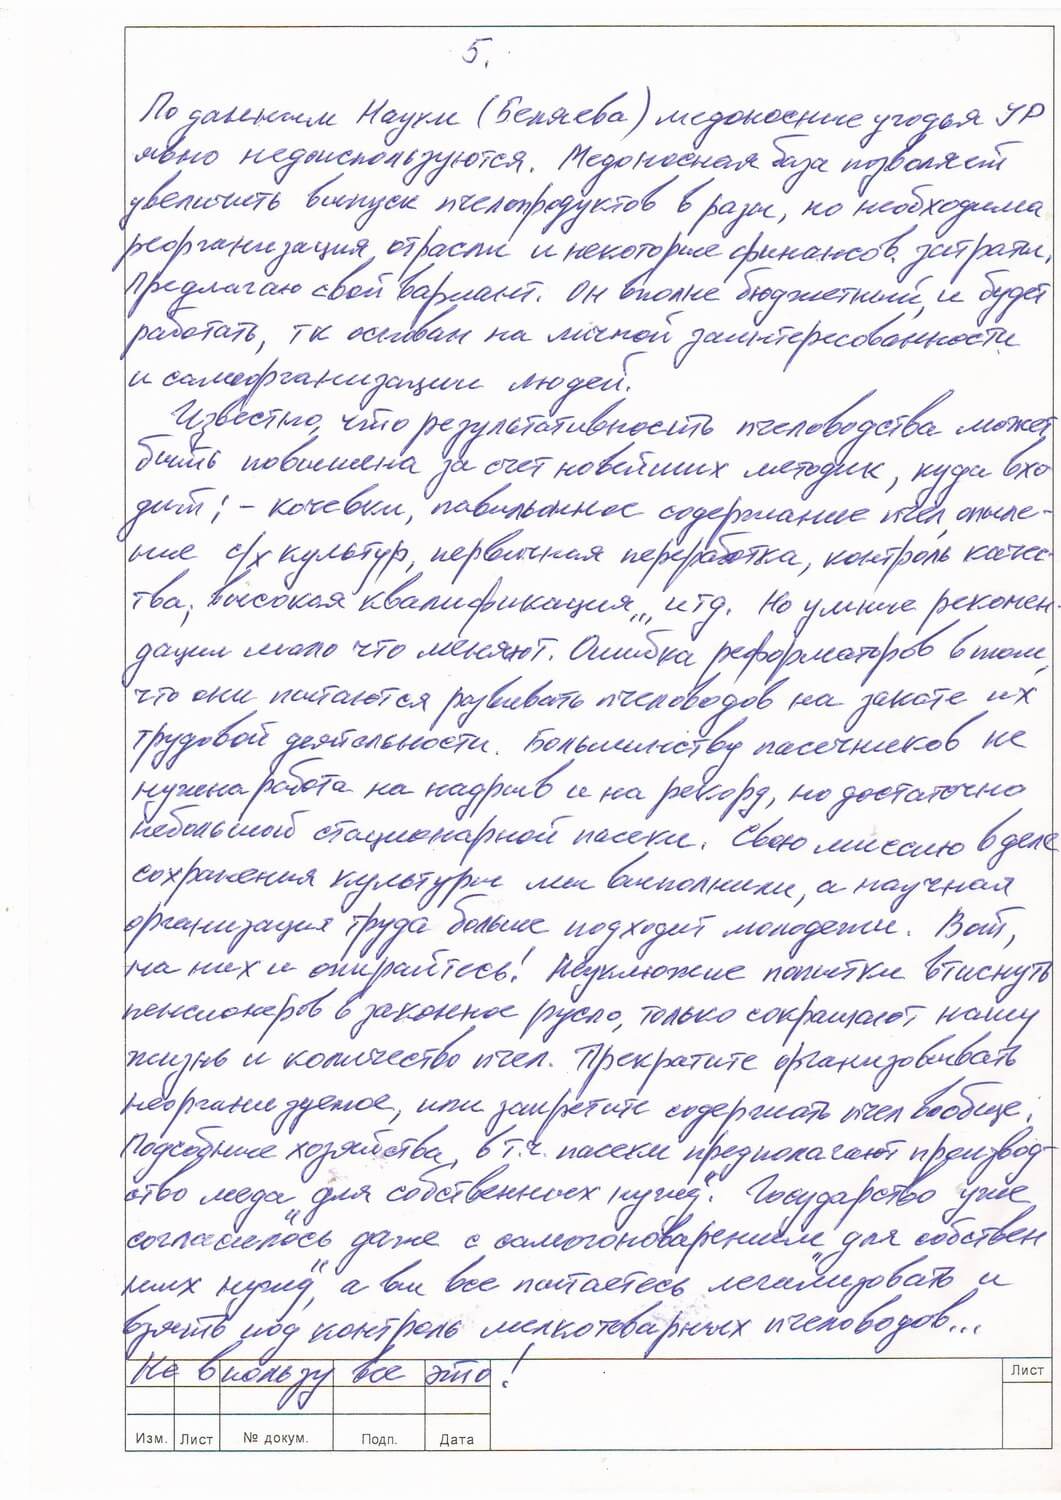 5.
По данным Науки (Беляева) медоносные угодья УР
явно недоиспользуются. Медоносная база позволяет
увеличить выпуск пчелопродуктов в разы, но необходима
реорганизация отрасли и некоторые финансов. затраты.
Предлагаю свой вариант. Он вполне бюджетный, и будет
работать, тк основан на личной заинтересованности
и самоорганизации людей.
Известно, что результативность пчеловодства может
быть повышена за счет новейших методик, куда вхо-
дит: - кочевки, павильонное содержание пчел, опыле-
ние с/х культур, первичная переработка, контроль качес-
тва, высокая квалификация,,, итд. Но умные рекомен-
дации мало что меняют. Ошибка реформаторов в том,
что они пытаются развивать пчеловодов на закате их
трудовой деятельности. Большинству пасечников не
нужна работа на надрыв и на рекорд, но достаточно
небольшой стационарной пасеки. Свою миссию в деле
сохранения культуры мы выполнили, а научная
организация труда больше подходит молодежи. Вот,
на них и опирайтесь! Неуклюжие попытки втиснуть
пенсионеров в законное русло, только сокращают нашу
жизнь и количество пчел. Прекратите организовывать
неорганизуемое, или запретите содержать пчел вообще.
Подсобные хозяйства, в т.ч. пасеки предполагают производ-
ство меда „для собственных нужд". Государство уже
согласилось даже с самогоноварением „для собствен
ных нужд", а вы все пытаетесь легализовать и
взять под контроль мелкотоварных пчеловодов...
Не в пользу все это!
Лист
Изм. Лист № докум. Подп. Дата